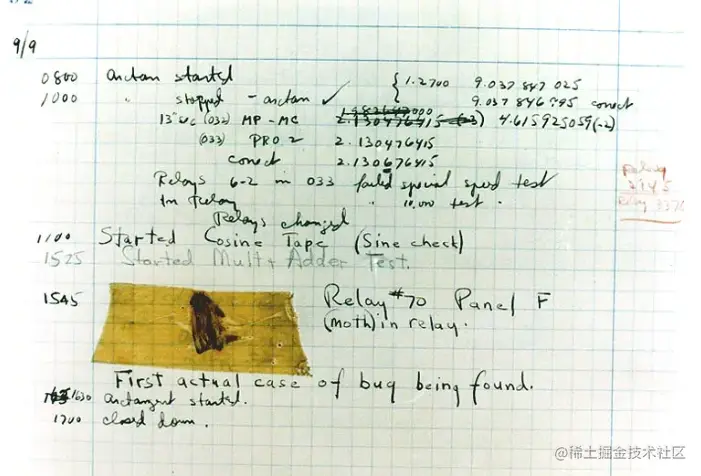 9/9
0800 arctan started
1000 " stopped - arctan ✓
{ 1.2700 9.037 847 025
9.037 846 795 correct
13"uc (033) MP - MC 2.130476415 4.615925059(-2)
(033) PRO 2 2.130476415
correct 2.130676415
Relays 6-2 in 033 failed special speed test
in Relay " 10,000 test .
Relays changed
Relay
2145
Relay 337
1100 Started Cosine Tape (Sine check)
1525 Started Mult + Adder Test.
1545 Relay #70 Panel F
(moth) in relay.
First actual case of bug being found.
1630 arctangent started.
1700 closed down.
@稀土掘金技术社区